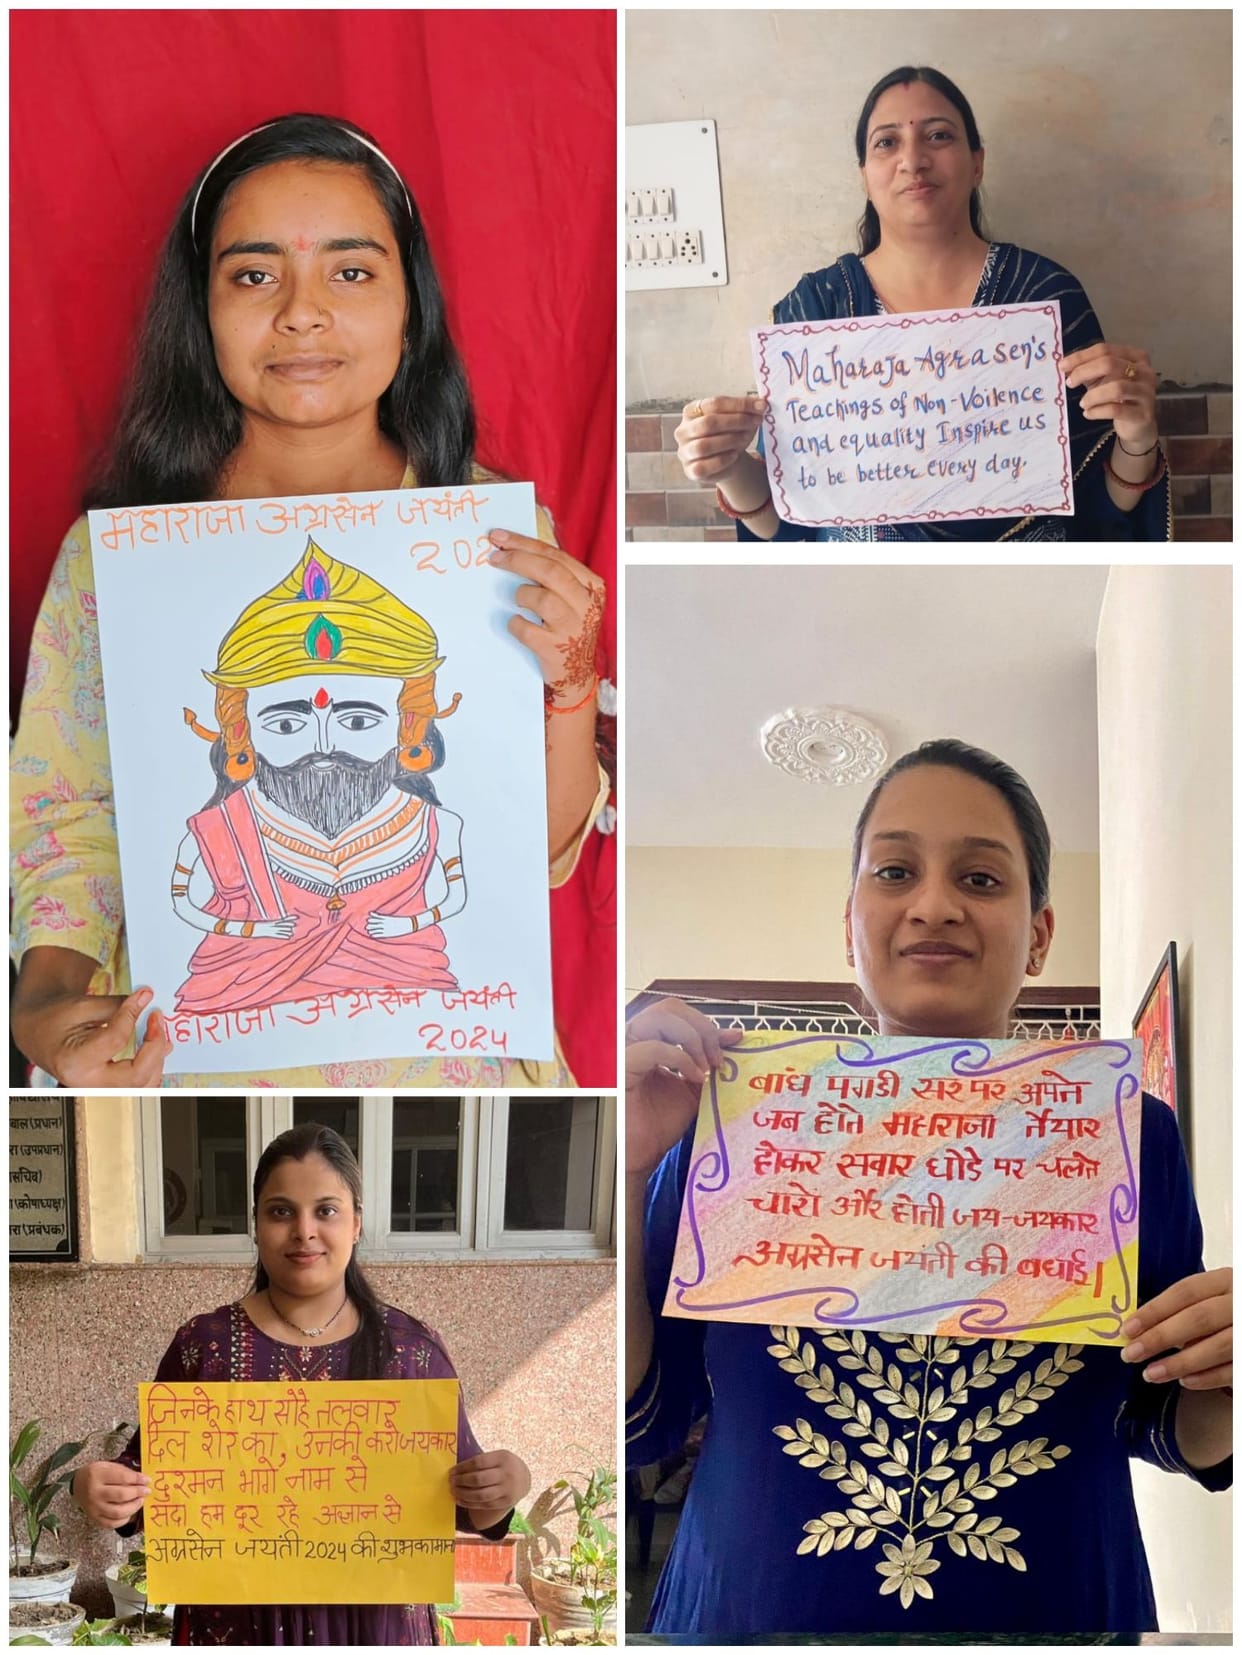 महाराजा अग्रसेन जयंती
202
महाराजा अग्रसेन जयंती
2024
Maharaja Agrasen's
Teachings of Non-Voilence
and equality Inspire us
to be better every day.
बाल(प्रधान)
रा(उपप्रधान)
सचिव)
(कोषाध्यक्ष)
रा(प्रबंधक)
जिनके हाथ सोहे तलवार
दिल शेर का, उनकी करो जयकार
दुश्मन भागे नाम से
सदा हम दूर रहे अज्ञान से
अग्रसेन जयंती 2024 की शुभकामना
बांध पगडी सर पर अपने
जब होते महाराजा तैयार
होकर सवार घोडे पर चलते
चारो और होती जय-जयकार
अग्रसेन जयंती की बधाई।